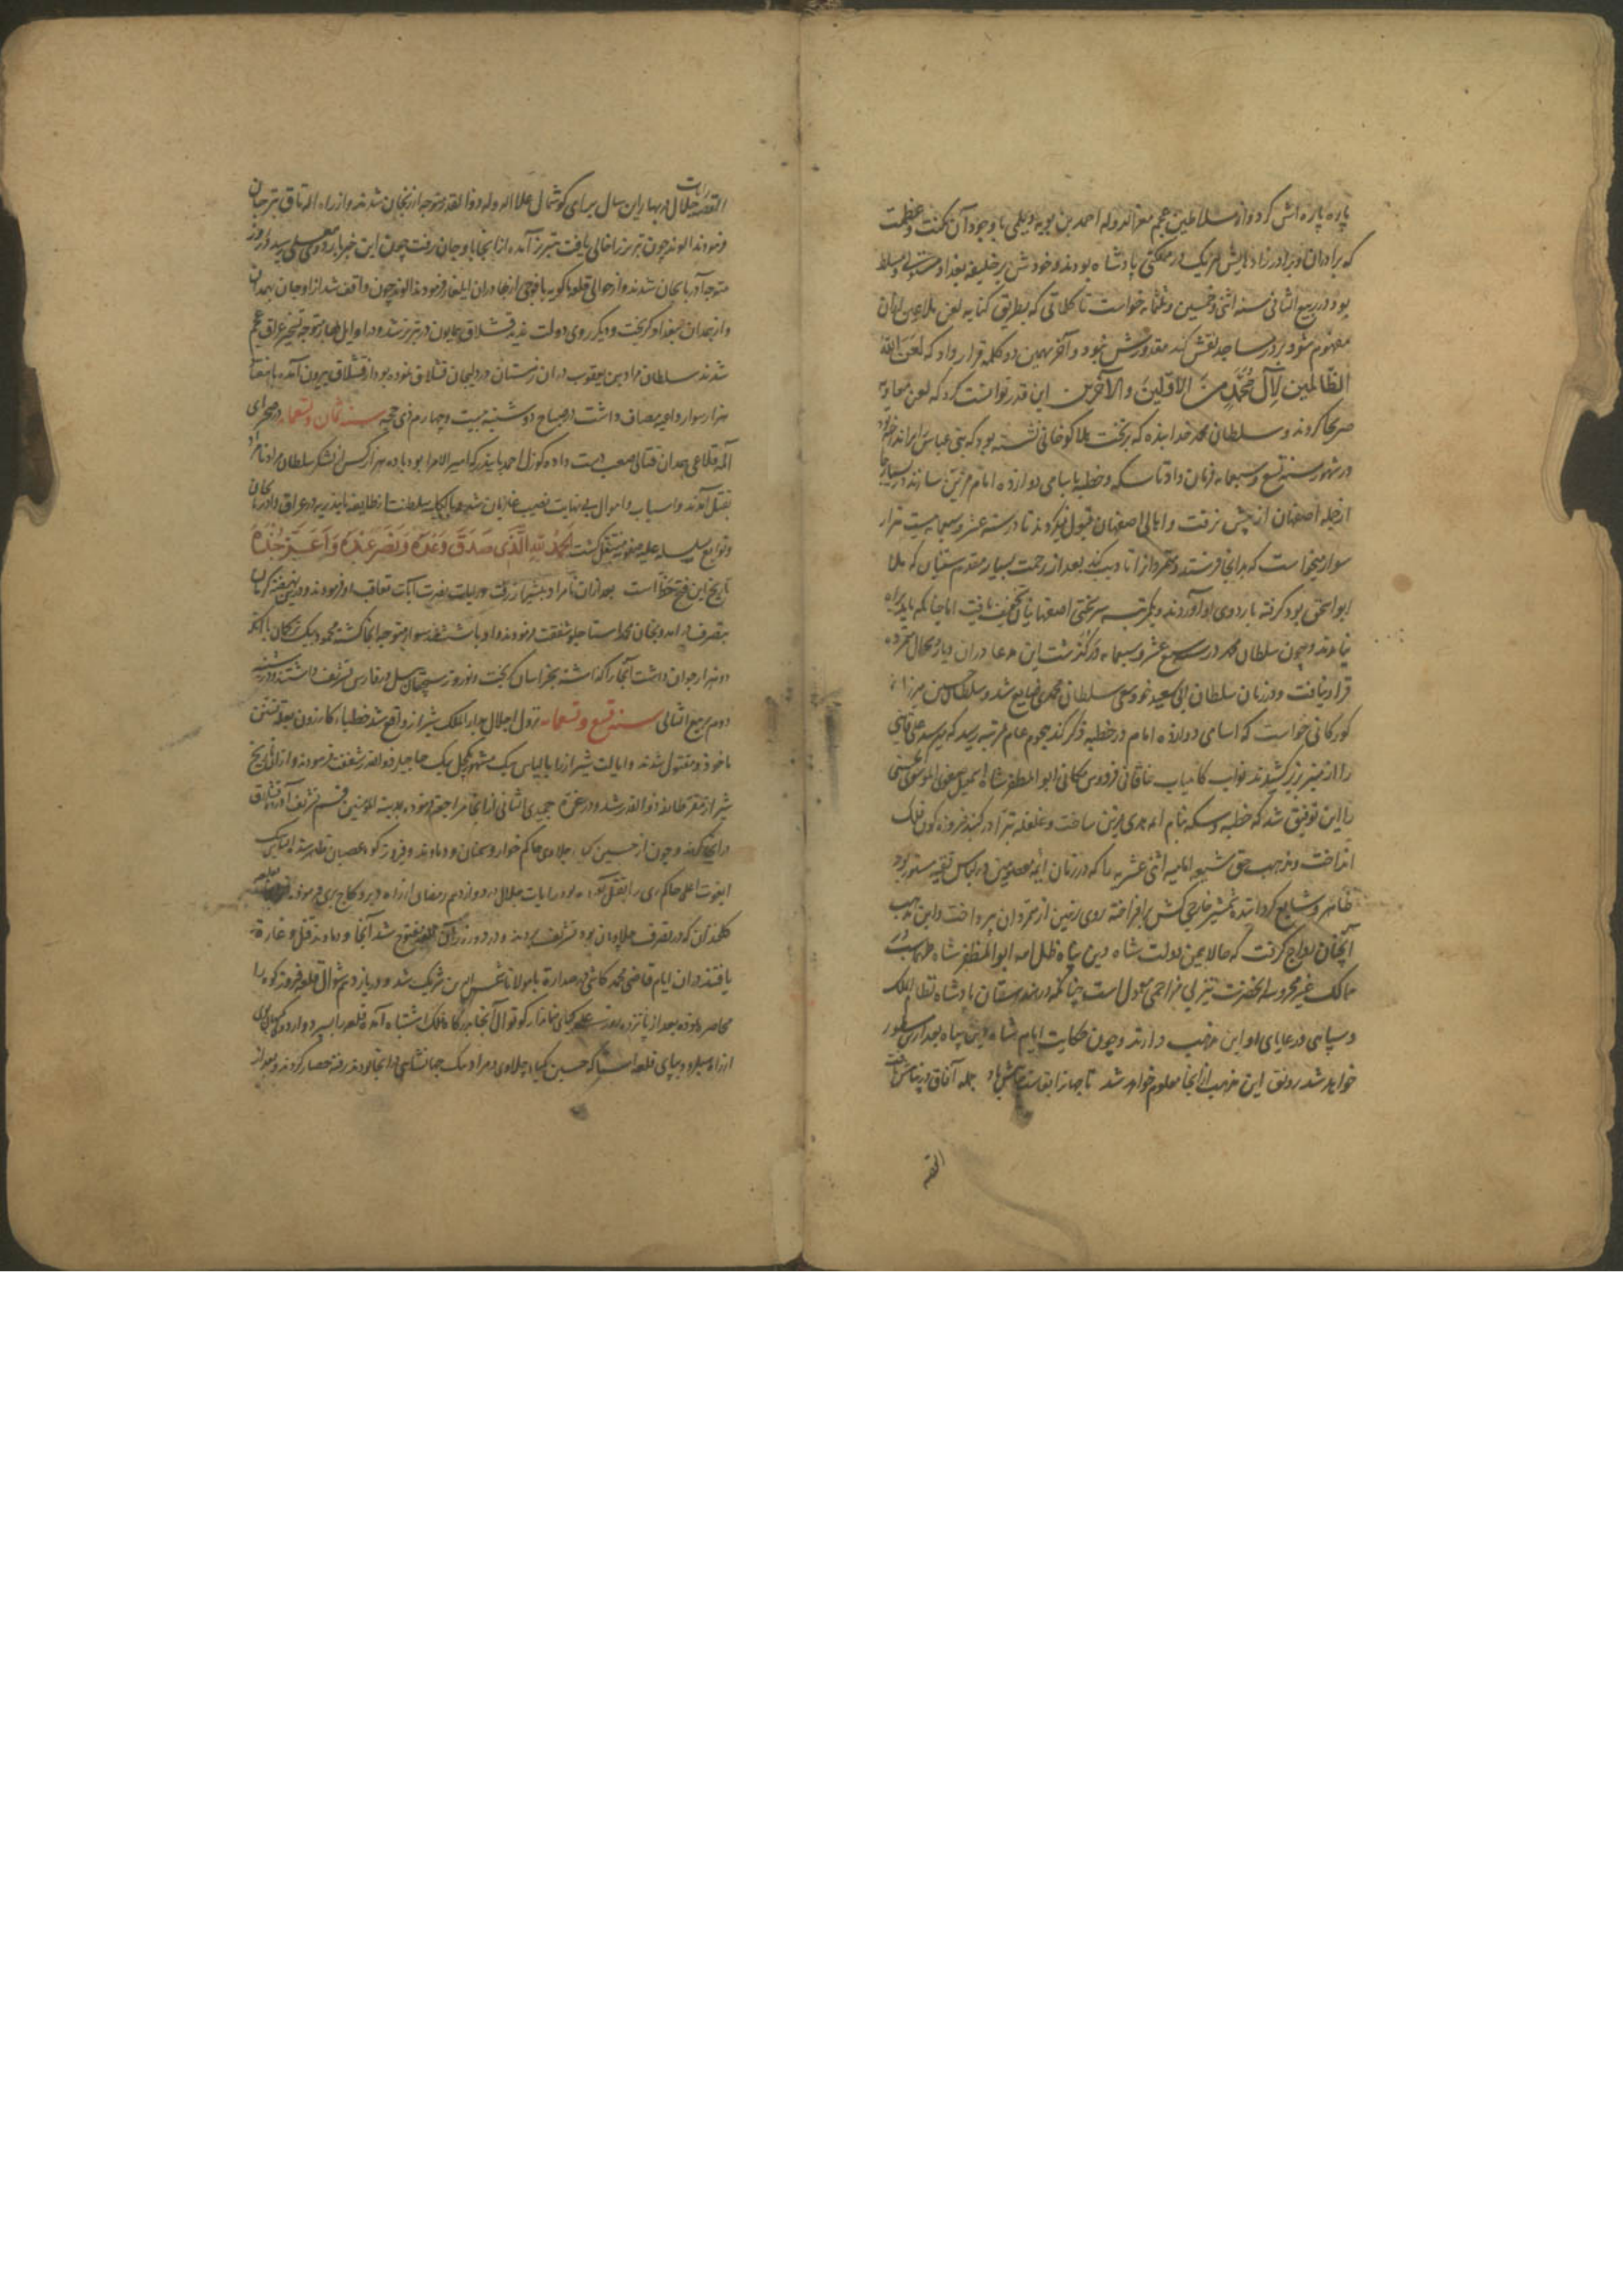 پاره پاره اش کرد و از سلاطین عجم معزالدوله احمد بن بویه دیلمی با وجود آن مکنت و عظمت
که برادران و برادرزادهایش هر یک در مملکتی پادشاه بودند و خودش بر خلیفه بغداد مستولی و مسلط
بود در ربیع الثانی سنه اثنی و خمسین و ثلثمایه خواست تا کلماتی که بطریق کنایه لعن ملاعین ازان
مفهوم شود بر در مساجد نقش کند مقدورش نبود و آخر بهمین دو کلمه قرار داد که لعن الله
الظالمین لآل محمد من الاولین والآخرین این قدر توانست کرد که لعن معاویه
صریحا کردند و سلطان محمد خدابنده که بر تخت هلاکوخانی نشسته بود که بنی عباس را برانداخته بود
در شهور سنه تسع و سبعمایه فرمان داد تا سکه و خطبه با سامی دوازده امام مزین سازند در بسیار جا
ازجمله اصفهان از پیش نرفت و اهالی اصفهان قبول نمیکردند تا در سنه عشر و سبعمایه بیست هزار
سوار میخواست که بدانجا فرستد و متمردان را تادیب کند بعد از زحمت بسیار مقدم سنیان که ملا
ابو اسحق بود گرفته باردوی او آوردند و یکمرتبه سرسختی اصفهانیان تخفیف یافت اما چنانکه باید براه
نیامدند و چون سلطان محمد در سبع عشر و سبعمایه درگذشت این مدعا در آن دیار بحال خود
قرار نیافت و در زمان سلطان ابی سعید نمود سعی سلطان محمد ضایع شد و سلطان حسین میرزا
کورکانی خواست که اسامی دوازده امام در خطبه ذکر کند هجوم عام بمرتبه رسید که میر سید علی قاینی
را از منبر بزیر کشیدند نواب کامیاب خاقانی فردوس مکانی ابوالمظفر شاه اسمعیل صفوی الموسوی الحسینی
را این توفیق شد که خطبه و سکه بنام ائمه هدی مزین ساخت و غلغله تبرا در گنبد فیروزه گون فلک
انداخت و مذهب حق شیعه امامیه اثنی عشریه را که در زمان ائمه معصومین در لباس تقیه مستور بود
ظاهر و شایع گردانیده شمشیر خارجی کش برافراخته روی زمین از متمردان پرداخت و این مذهب
آنچنان رواج گرفت که حالا بیمن دولت شاه دین پناه ظل اله ابوالمظفر شاه طهماسب در
ممالک غیر محروسه آنحضرت نیز بی مزاحمی معمول است چنانکه در هندوستان پادشاه نظام الملک
و سپاهی و رعایای او این مذهب دارند و چون حکایت ایام شاه دین پناه بعد ازین مسطور
خواهد شد رونق این مذهب از آنجا معلوم خواهد شد تا جهانرا بقاست جانش باد جمله آفاق در پناهش باد
القصه
القصه رایات جلال در بهار این سال برای گوشمال علاالدوله ذوالقدر متوجه ارزنجان شدند و از راه المتاق ترجان
فرمودند الوند چون تبریز را خالی یافت تبریز آمده از آنجا باوجان رفت چون این خبر باردوی معلی رسید از روز
متوجه آذربایجان شدند و از حوالی قلعه باکویه با فوجی از بهادران ایلغار فرمودند الوند چون واقف شد از اوجان بهمدان
و از همدان ببغداد گریخت و دیگر روی دولت ندید قشلاق همایون در تبریز شد و در اوایل بهار متوجه تسخیر عراق عجم
شدند سلطان مراد بن یعقوب در آن زمستان در دلیجان قشلاق نموده بود از قشلاق بیرون آمده با هفتاد
هزار سوار داعیه مصاف داشت در صباح دوشنبه بیست و چهارم ذی حجه سنه ثمان و تسعمایه در صحرای
المه قلاغی همدان قتالی صعب دست داده گوزل احمد بایندر که امیرالامرا بود با ده هزار کس از لشکر سلطان مراد نامراد
بقتل آمدند و اسباب و اموال بی نهایت نصیب غازیان شده بالکلیه سلطنت از طایفه بایندریه در عراق و آذربایجان
و توابع بسلسله علیه صفویه منتقل گشت الحمد لله الذی صدق وعده و نصر عبده و اعز جنده
تاریخ این فتح است بعد از آن نامراد بشیراز رفت و رایات نصرت آیات متعاقب او فرمودند
بتصرف در آمد و بخان محمد استاجلو شفقت فرمودند و او با ششصد سوار متوجه آنجا گشته محمود بیک ترکمان با آنکه
دو هزار جوان داشت آنجا را گذاشته بخراسان گریخت و نوروز سیچقان ئیل در فارس تشریف داشتند و در شنبه
دوم ربیع الثانی سنه تسع و تسعمایه نزول اجلال بدارالملک شیراز واقع شد خطبای کازرون بعلت تسنن
ماخوذ و مقتول شدند و ایالت شیراز را بالیاس بیک مشهور بکچل بیک حاجیلر ذوالقدر شفقت فرمودند و از آن تاریخ
شیراز مقر طایفه ذوالقدر شد و در غره جمیدی الثانی از آنجا مراجعت فرموده بمدینه المومنین قم تشریف آورده قشلاق
در آنجا کردند و چون از حسین کیا چلاوی حاکم خوار و سمنان و دماوند و فیروزکوه عصیان ظاهر شد الیاس بیک
ایغوت اعلی حاکم ری را بقتل آورده بود رایات جلال در دوازدهم رمضان از راه دیر و کاج بری فرمودند
گلخندان که در تصرف چلاویان بود تشریف بردند و در دو روز آن قلعه مفتوح شد آنجا و دماوند قتل و غارة
یافتند در آن ایام قاضی محمد کاشی در صدارة با مولانا شمس الدین شریک شد و در یازدهم شوال قلعه فیروزکوه را
محاصره نموده بعد از پانزده روز علی کیای ضماندار کوتوال آنجا بدرگاه فلک اشتباه آمده قلعه را بسپرد و اردوی کیهان پوی
از راه سیلرود بپای قلعه استا که حسین کیای چلاوی و مراد بیک جهانشاهی در آنجا بودند رفته حصار کردند و بعد از